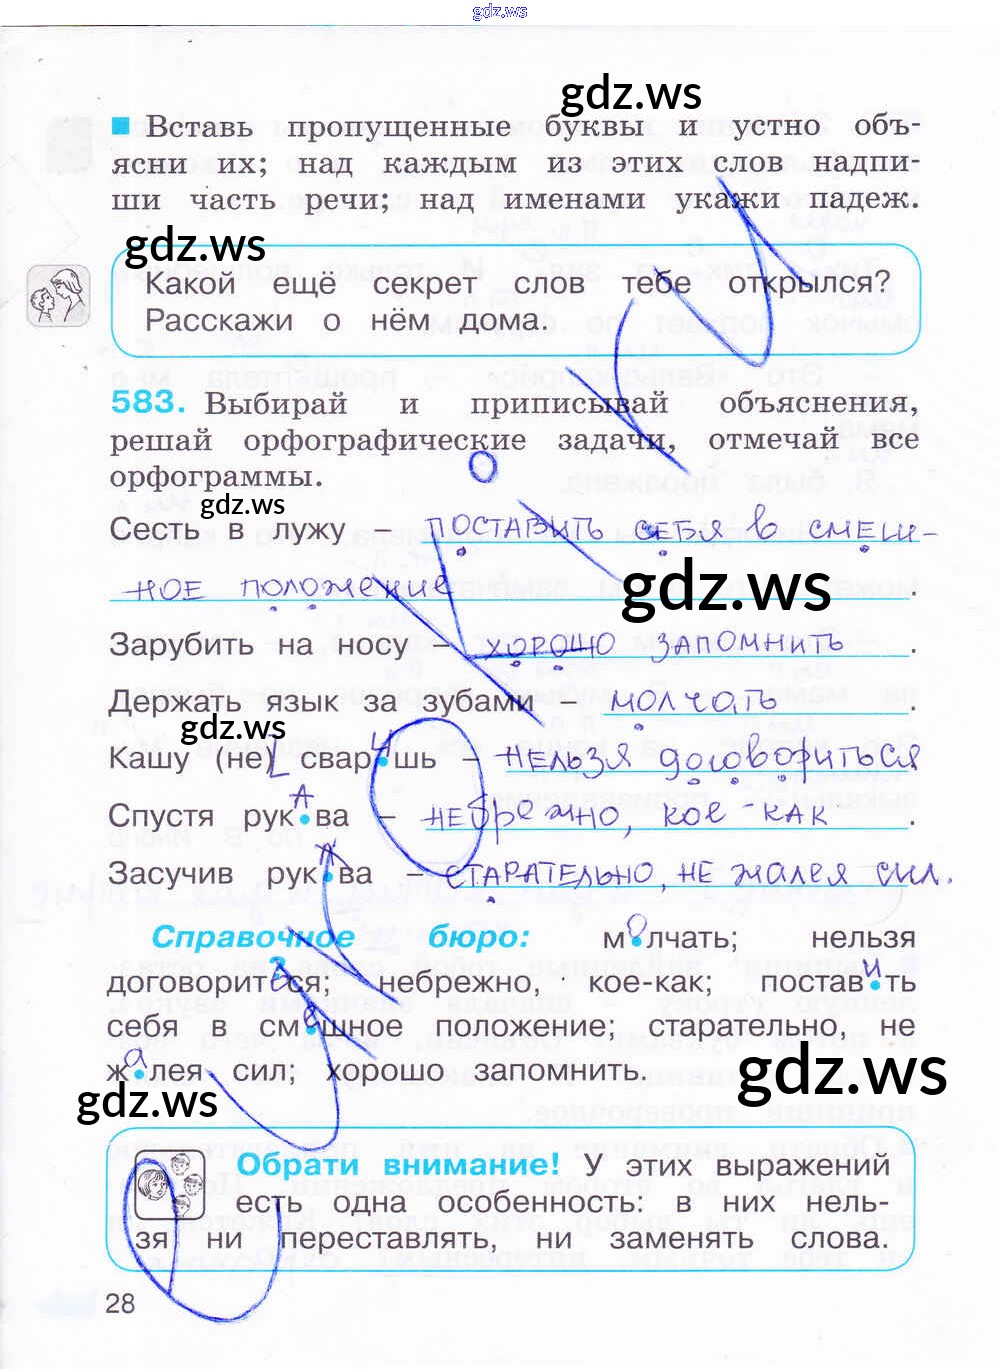 gdz.ws
gdz.ws
Вставь пропущенные буквы и устно объ-
ясни их; над каждым из этих слов надпи-
ши часть речи; над именами укажи падеж.
gdz.ws
Какой ещё секрет слов тебе открылся?
Расскажи о нём дома.
583. Выбирай и приписывай объяснения,
решай орфографические задачи, отмечай все
орфограммы.
gdz.ws
Сесть в лужу – поставить себя в смеш-
ное положение.
gdz.ws
Зарубить на носу – хорошо запомнить.
Держать язык за зубами – молчать.
gdz.ws
Кашу (не) сваришь – нельзя договориться
Спустя рукава – небрежно, кое-как.
Засучив рукава – старательно, не жалея сил.
Справочное бюро: молчать; нельзя
договориться; небрежно, кое-как; поставить
себя в смешное положение; старательно, не
жалея сил; хорошо запомнить.
gdz.ws
gdz.ws
Обрати внимание! У этих выражений
есть одна особенность: в них нель-
зя ни переставлять, ни заменять слова.
28